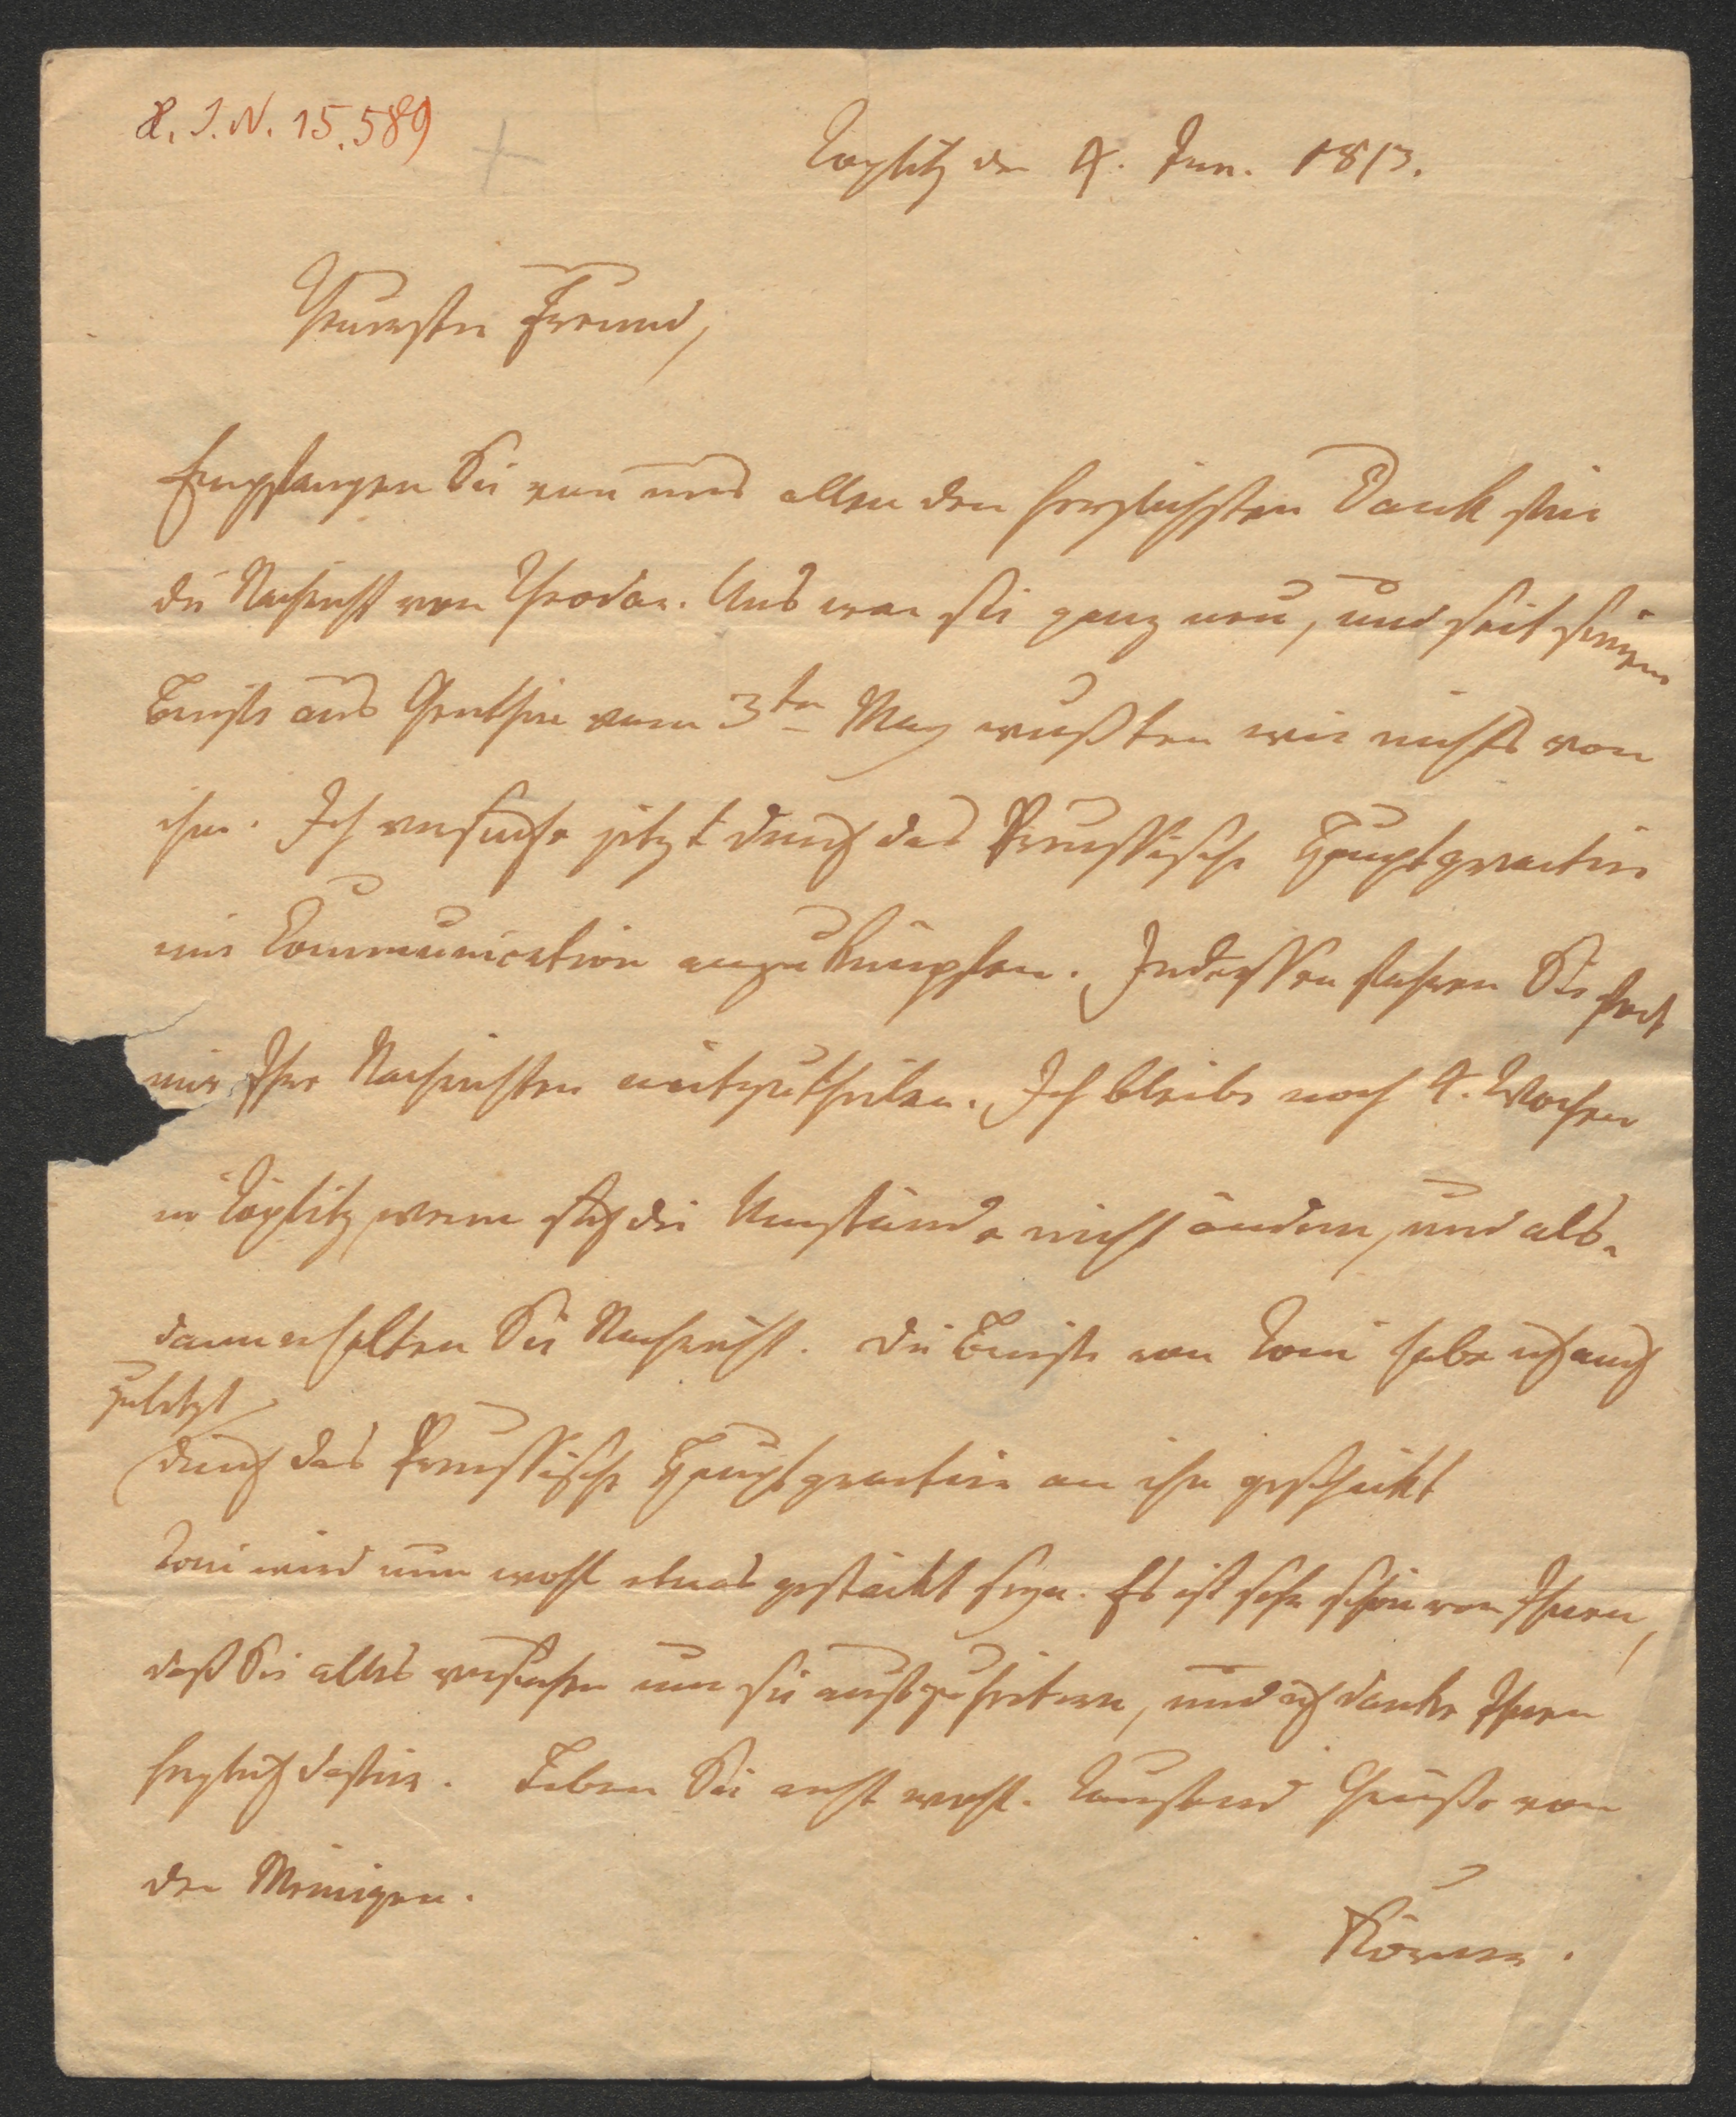 H. I. N. 15.589
Töplitz den 4. Jun. 1813.
Theuerster Freund,
Empfangen Sie von uns allen den herzlichsten Dank für
die Nachricht von Theodor. Uns war sie ganz neu, und seit seinem
Briefe aus Genthin vom 3ten May wußten wir nichts von
ihm. Ich versuche jetzt durch das Preussische Hauptquartier
eine Communication anzuknüpfen. Indessen fahren Sie fort
mir Ihre Nachrichten mitzutheilen. Ich bleibe noch 4. Wochen
in Töplitz, wenn sich die Umstände nicht ändern, und als-
dann erhalten Sie Nachricht. Die Briefe von Toni habe ich auch
zuletzt
durch das Preussische Hauptquartier an ihn geschickt
Toni wird nun wohl etwas gestärkt seyn. Es ist sehr schön von Ihnen,
daß Sie alles versuchen um sie aufzuheitern, und ich danke Ihnen
herzlich dafür. Leben Sie recht wohl. Tausend Grüße von
den Meinigen.
Körner.